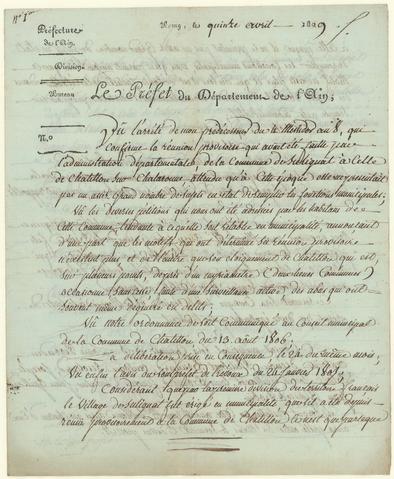 Préfecture
de l'Ain.
Division
Bureau
N.o
Bourg, le quinze avril 1809
Le Préfet du Département de l'Ain;
Vu l'arrêté de mon prédécesseur du Messidor an 8, qui
confirme la réunion provisoire qui avait été faite par
l'administration départementale de la Commune de Sulignat à Celle
de Chatillon sur Chalaronne attendu qu'à Cette époque elle ne possédait
pas un assez grand nombre de sujets en état de remplir les fonctions municipales;
Vu les diverses pétitions qui nous ont été adressées par les habitans de
Cette Commune tendante à ce qu'elle soit rétablie en municipalité, remontrant
d'une part que les motifs qui ont déterminé sa réunion provisoire
n'existent plus, et de l'autre que son éloignement de Chatillon qui est,
sur plusieurs points, de plus d'un myriamètre (deux lieues Communes)
occasionne sans cesse faute d'une surveillance active des abus qui ont
souvent même dégénéré en délits;
Vu notre ordonnance de soit Communiqué au Conseil municipal
de la Commune de Chatillon du 13 aout 1806;
La délibération prise en Conséquence le 24 du même mois;
Vu enfin l'avis du sous préfet de Trévoux du 24 janvier 1807;
Considérant que par la première division du territoire français
le Village de Sulignat fut érigé en municipalité, qu'il a été depuis
réuni provisoirement à la Commune de Chatillon,